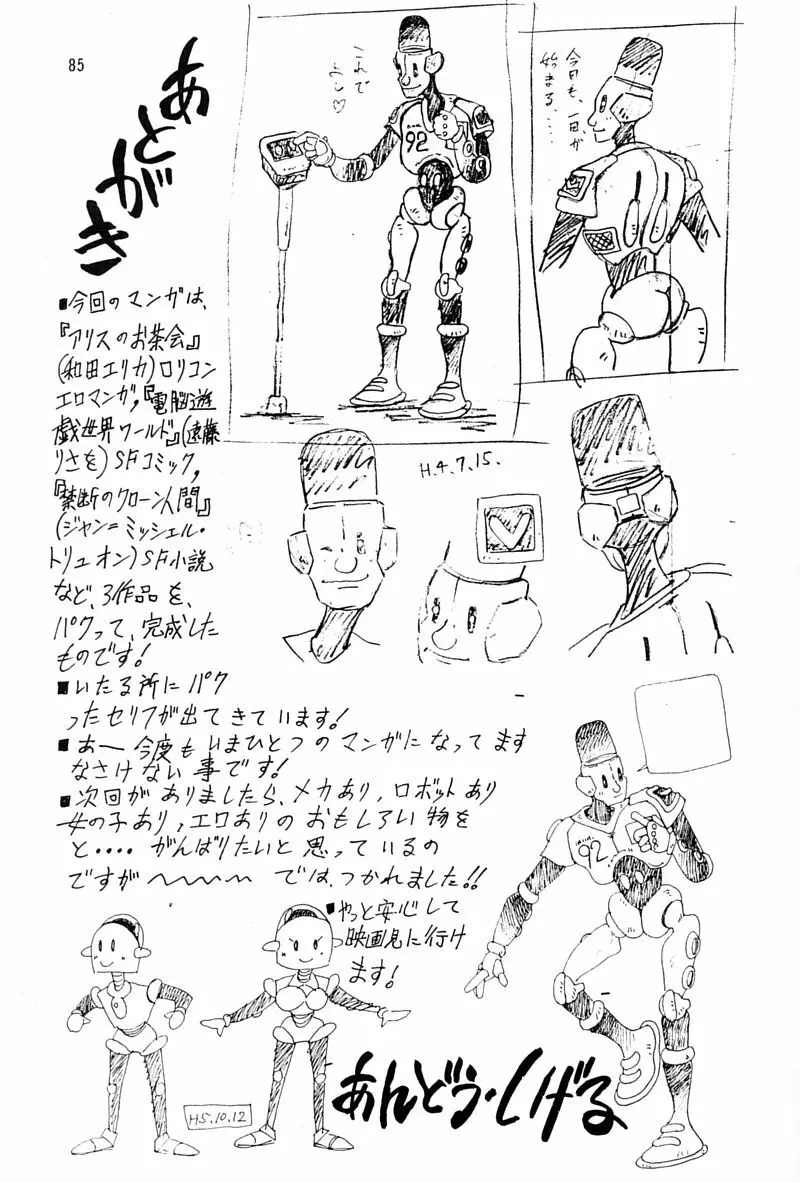 85
あとがき
これで
よし♡
92
今日も、一日が
始まる、・・・・
H.4.7.15.
■今回のマンガは、
『アリスのお茶会』
(和田エリカ)ロリコン
エロマンガ,『電脳遊
戯世界ワールド』(遠藤
りさを)SFコミック,
『禁断のクローン人間』
(ジャン=ミッシェル・
トリュオン)SF小説
など、3作品を、
パクって、完成した
ものです!
■いたる所にパク
ったセリフが出てきています!
■あー今度もいまひとつのマンガになってます
なさけない事です!
■次回がありましたら、メカあり,ロボットあり
女の子あり,エロありのおもしろい物を
と・・・・がんばりたいと思っているの
ですが〜〜〜〜では、つかれました!!
■やっと安心して
映画見に行け
ます!
92
H5.10.12
あんどう・しげる